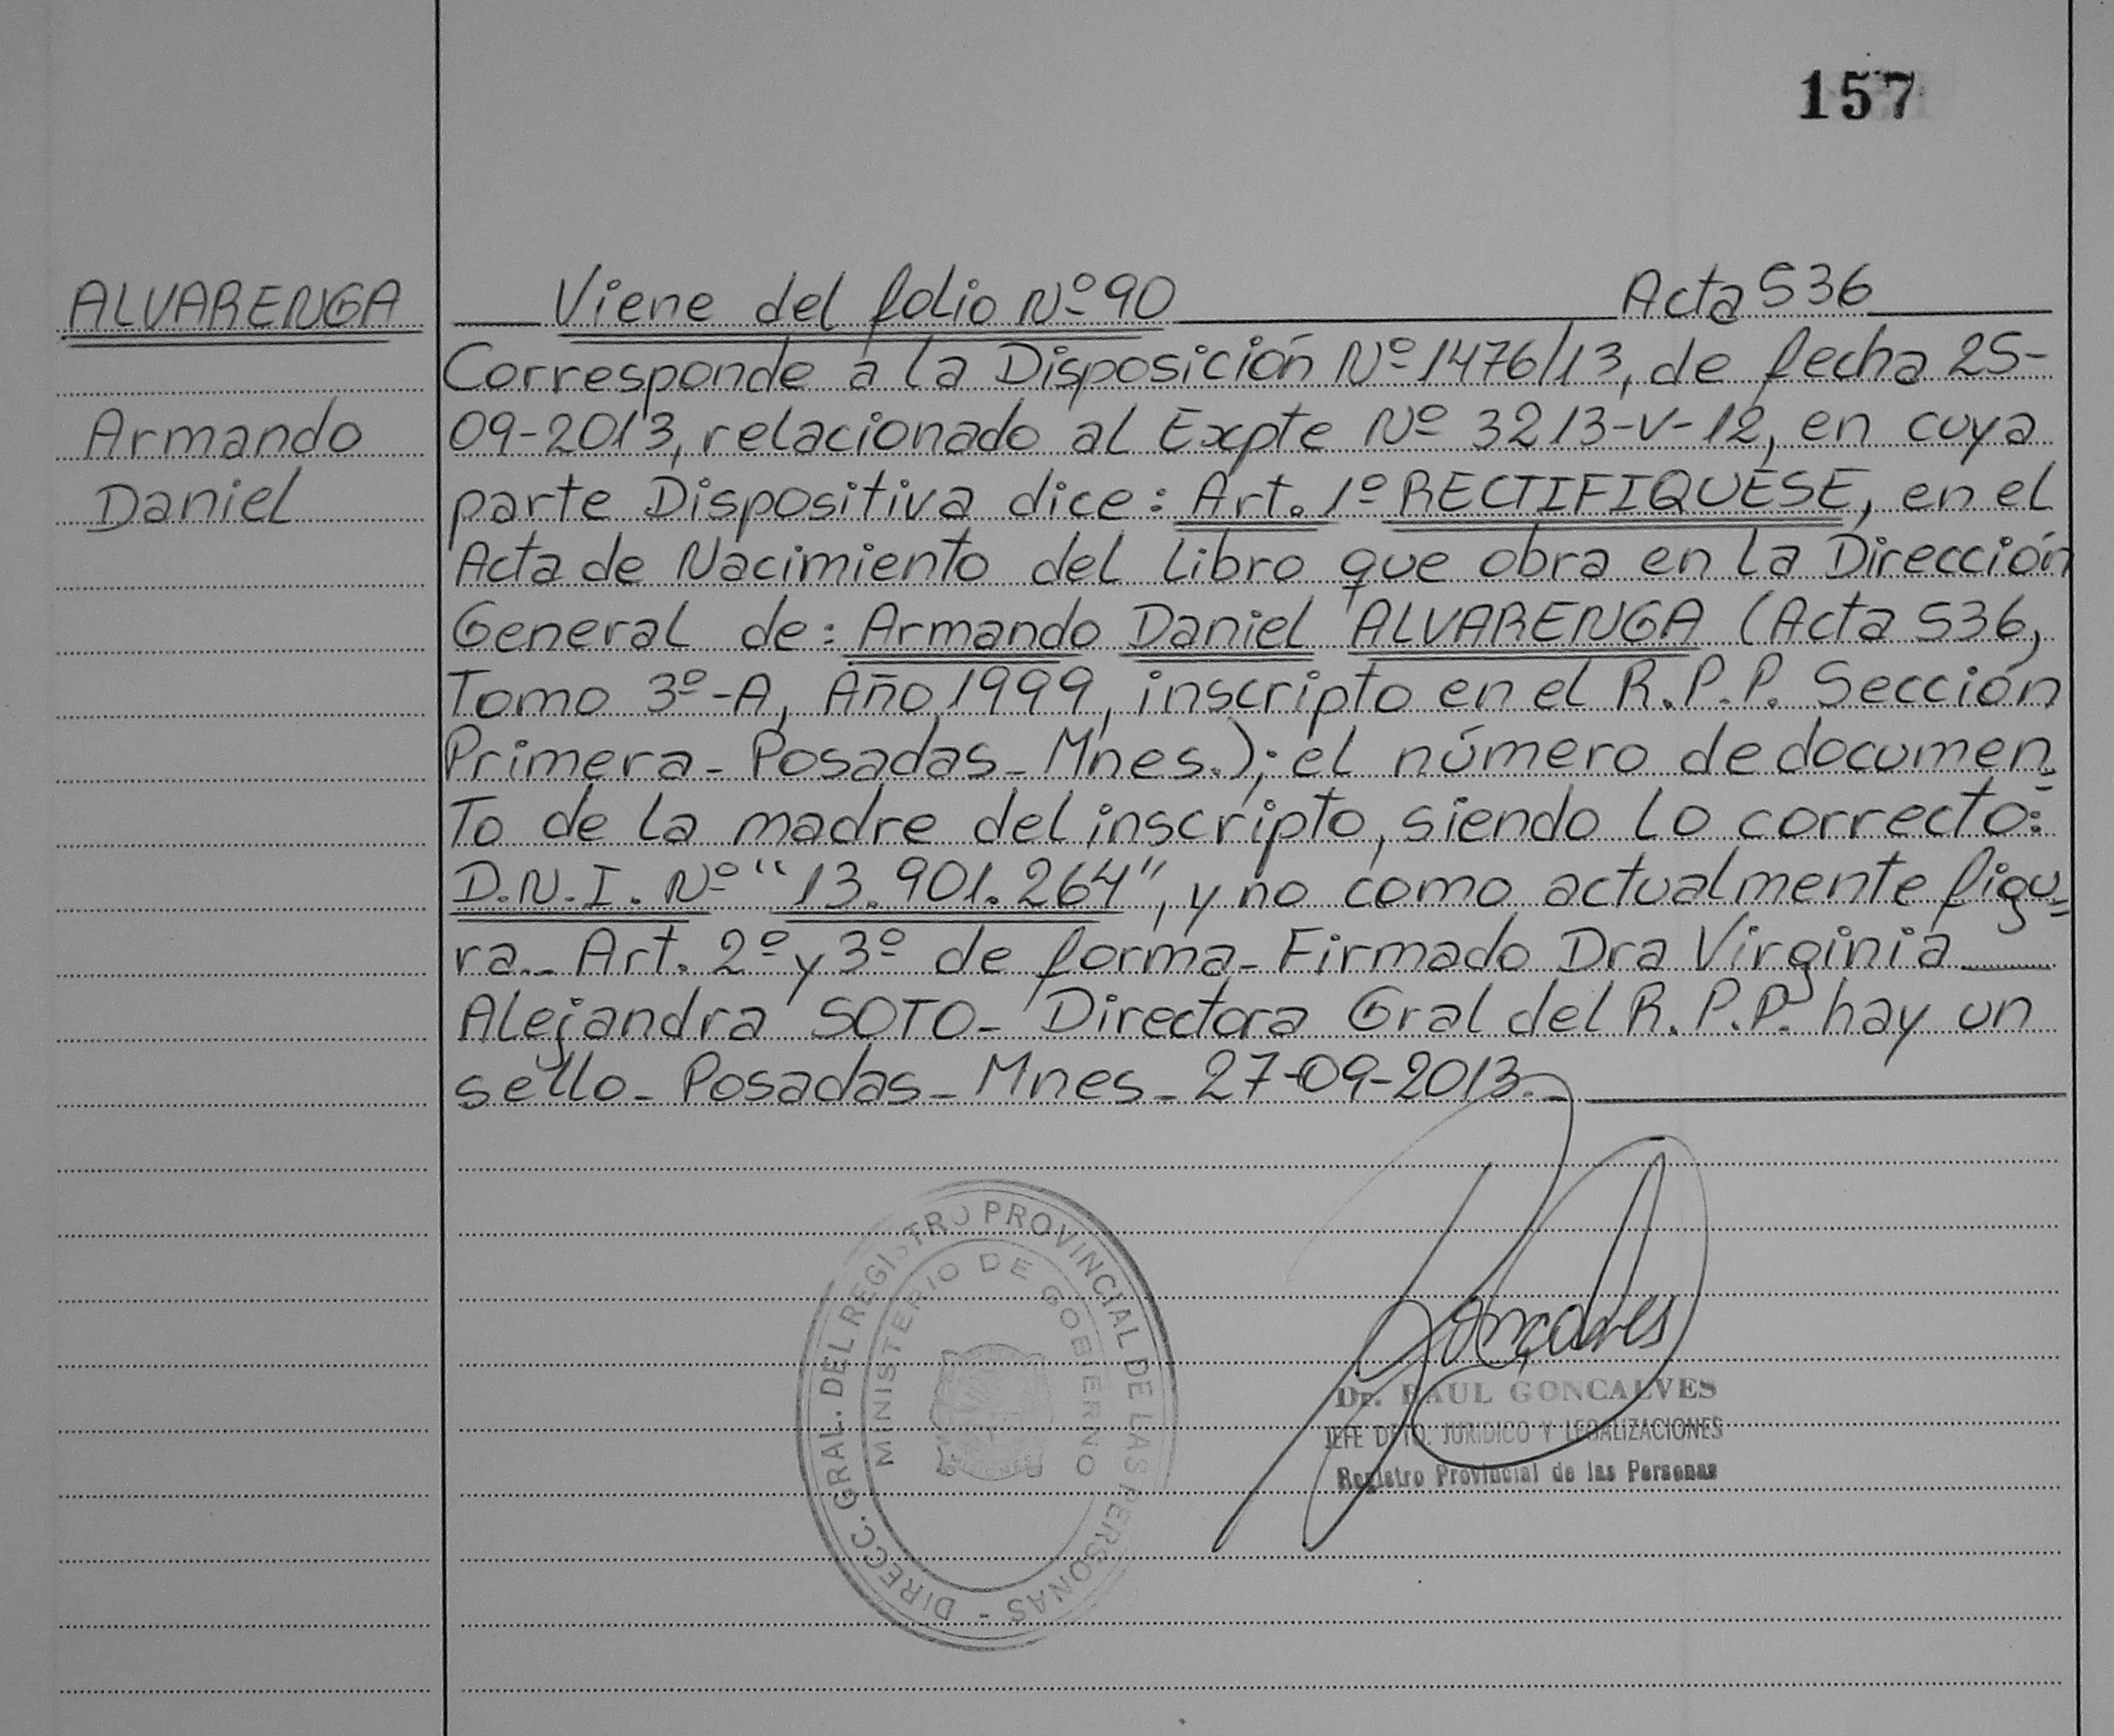 157
ALVARENGA
Armando
Daniel
Viene del folio Nº 90 Acta 536
Corresponde a la Disposición Nº 1476/13, de fecha 25-
09-2013, relacionado al Expte Nº 3213-V-12, en cuya
parte Dispositiva dice: Art. 1º RECTIFIQUESE, en el
Acta de Nacimiento del Libro que obra en la Dirección
General de: Armando Daniel ALVARENGA (Acta 536,
Tomo 3º-A, Año 1999, inscripto en el R.P.P. Sección
Primera - Posadas - Mnes.); el número de documen=
To de la madre del inscripto, siendo lo correcto:
D.N.I. Nº "13.901.264", y no como actualmente figu=
ra.- Art. 2º y 3º de forma - Firmado Dra Virginia
Alejandra SOTO - Directora Gral del R.P.P. hay un
sello - Posadas - Mnes - 27-09-2013.-
DIRECC. GRAL. DEL REGISTRO PROVINCIAL DE LAS PERSONAS -
MINISTERIO DE GOBIERNO
Goncalves
Dr. RAUL GONCALVES
JEFE DPTO. JURIDICO Y LEGALIZACIONES
Registro Provincial de las Personas